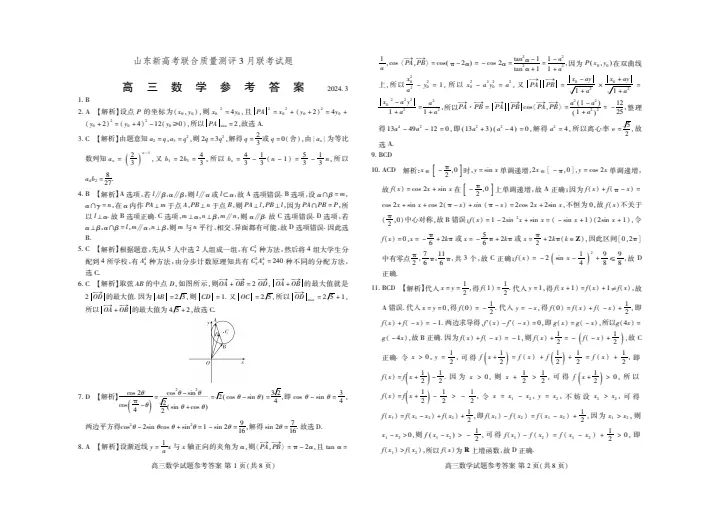 山东新高考联合质量测评 3 月联考试题
高 三 数 学 参 考 答 案 2024.3
1. B
2. A 【解析】设点 P 的坐标为(x₀,y₀),则 x₀²=4y₀,且|PA|²=x₀²+(y₀+2)²=4y₀+
(y₀+2)²=(y₀+4)²-12(y₀≥0),所以|PA|min=2,故选 A.
3. C 【解析】由题意知 a₂=q,a₃=q²,则 2q=3q²,解得 q=2/3或 q=0(舍),由{aₙ}为等比
数列知 aₙ=(2/3)ⁿ⁻¹,又 b₁=2b₃=4/3,所以 bₙ=4/3-1/3(n-1)=5/3-1/3n,所以
a₄b₂=8/27.
4. B 【解析】A 选项,若 l∥β,α∥β,则 l∥α 或 l⊂α,故 A 选项错误. B 选项,设 α∩β=m,
α∩γ=n,在 α 内作 PA⊥m 于点 A,PB⊥n 于点 B,则 PA⊥l,PB⊥l,因为 PA∩PB=P,所
以 l⊥α. 故 B 选项正确. C 选项,m⊥α,n⊥β,m∥n,则 α∥β. 故 C 选项错误. D 选项,若
α⊥β,α∩β=l,m∥α,n⊥β,则 m 与 n 平行、相交、异面都有可能,故 D 选项错误. 因此选
B.
5. C 【解析】根据题意,先从 5 人中选 2 人组成一组,有 C₅² 种方法,然后将 4 组大学生分
配到 4 所学校,有 A₄⁴ 种方法,由分步计数原理知共有 C₅²A₄⁴=240 种不同的分配方法,
选 C.
6. C 【解析】取弦 AB 的中点 D,如图所示,则OA+OB=2 OD,|OA+OB|的最大值就是
2|OD|的最大值. 因为|AB|=2√3,则|CD|=1. 又|OC|=2√5,所以|OD|max=2√5+1,
所以|OA+OB|的最大值为 4√5+2,故选 C.
y
A
C
D
B
O
x
7. D 【解析】cos 2θ/cos(π/4-θ)=(cos²θ-sin²θ)/(√2/2(sin θ+cos θ))=√2(cos θ-sin θ)=3√2/4,即 cos θ-sin θ=3/4,
两边平方得cos²θ-2sin θcos θ+sin²θ=1-sin 2θ=9/16,解得 sin 2θ=7/16. 故选 D.
8. A 【解析】设渐近线 y=1/a x 与 x 轴正向的夹角为 α,则⟨PA,PB⟩=π-2α,且 tan α=
高三数学试题参考答案 第 1 页(共 8 页)
1/a,cos⟨PA,PB⟩=cos(π-2α)=-cos 2α=(tan²α-1)/(tan²α+1)=(1-a²)/(1+a²). 因为 P(x₀,y₀)在双曲线
上,所以 x₀²/a²-y₀²=1,所以 x₀²-a²y₀²=a²,又|PA||PB|=|x₀-ay|/√(1+a²)×|x₀+ay|/√(1+a²)=
|x₀²-a²y²|/(1+a²)=a²/(1+a²),所以PA·PB=|PA||PB|cos⟨PA,PB⟩=a²(1-a²)/(1+a²)²=-12/25,整理
得 13a⁴-49a²-12=0,即(13a²+3)(a²-4)=0,解得 a²=4,所以离心率 e=√5/2,故
选 A.
9. BCD
10. ACD 解析:x∈[-π/2,0]时,y=sin x 单调递增,2x∈[-π,0],y=cos 2x 单调递增,
故 f(x)=cos 2x+sin x 在[-π/2,0]上单调递增,故 A 正确;因为 f(x)+f(π-x)=
cos 2x+sin x+cos 2(π-x)+sin(π-x)=2cos 2x+2sin x,不恒为 0,故 f(x)不关于
(π/2,0)中心对称,故 B 错误;f(x)=1-2sin²x+sin x=(-sin x+1)(2sin x+1),令
f(x)=0,x=-π/6+2kπ 或 x=-5/6π+2kπ 或 x=π/2+2kπ(k∈Z),因此区间[0,2π]
中有零点π/2,7/6π,11/6π,共 3 个,故 C 正确;f(x)=-2(sin x-1/4)²+9/8≤9/8,故 D
正确.
11. BCD 【解析】代入 x=y=1/2,得 f(1)=1/2. 代入 y=1,得 f(x+1)=f(x)+1≠f(x),故
A 错误. 代入 x=y=0,得 f(0)=-1/2. 代入 y=-x,得 f(0)=f(x)+f(-x)+1/2,即
f(x)+f(-x)=-1. 两边求导得,f'(x)-f'(-x)=0,即 g(x)=g(-x),所以g(4x)=
g(-4x),故 B 正确. 因为 f(x)+f(-x)=-1,则 f(x)+1/2=-(f(-x)+1/2),故 C
正确. 令 x>0,y=1/2,可得 f(x+1/2)=f(x)+f(1/2)+1/2=f(x)+1/2,即
f(x)=f(x+1/2)-1/2. 因为 x>0,则 x+1/2>1/2,可得 f(x+1/2)>0,所以
f(x)=f(x+1/2)-1/2>-1/2,令 x=x₁-x₂,y=x₂,不妨设 x₁>x₂,可得
f(x₁)=f(x₁-x₂)+f(x₂)+1/2,即 f(x₁)-f(x₂)=f(x₁-x₂)+1/2,因为 x₁>x₂,则
x₁-x₂>0,则 f(x₁-x₂)>-1/2,可得 f(x₁)-f(x₂)=f(x₁-x₂)+1/2>0,即
f(x₁)>f(x₂),所以 f(x)为 R 上增函数,故 D 正确.
高三数学试题参考答案 第 2 页(共 8 页)